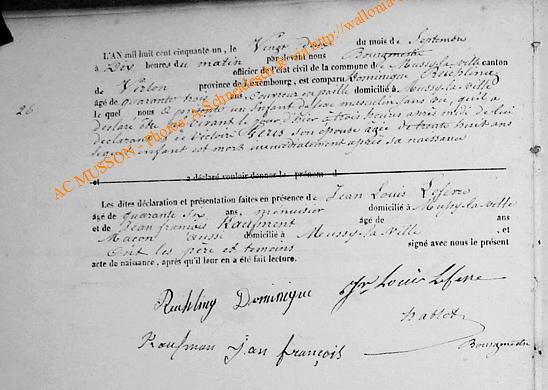 L'AN mil huit cent cinquante-un, le Vingt deux du mois de Septembre
à Dix heures du matin par devant nous Bourgmestre
officier de l'état civil de la commune de Mussy-la-ville canton
de Virton province de Luxembourg, est comparu Dominique
âgé de quarante trois ans, Couvreur en paille domicilié à Mussy-la-ville
26
lequel nous a présenté un Enfant de sexe masculin sans vie, qu'il a
déclaré être né vivant le jour d'hier à trois heures après midi de lui
déclarant et de Victoire son épouse agée de trente huit ans
lequel enfant est mort immédiatement après sa naissance
et a déclaré vouloir donner le prénom d
Les dites déclaration et présentation faites en présence de Jean Louis Lefevre
âgé de quarante six ans, menuisier domicilié à Mussy-la-ville
et de Jean françois Kaufment âgé de ans
Macon aussi domicilié à Mussy-la-ville, et
ont les père et témoins signé avec nous le présent
acte de naissance, après qu'il leur en a été fait lecture.
Reuhling Dominique Jn Louis Lefevre
Hablot
Kaufman Jan françois Bourgmestre
AC MUSSON - Photos: A. Schmickrath @ http://wallonia